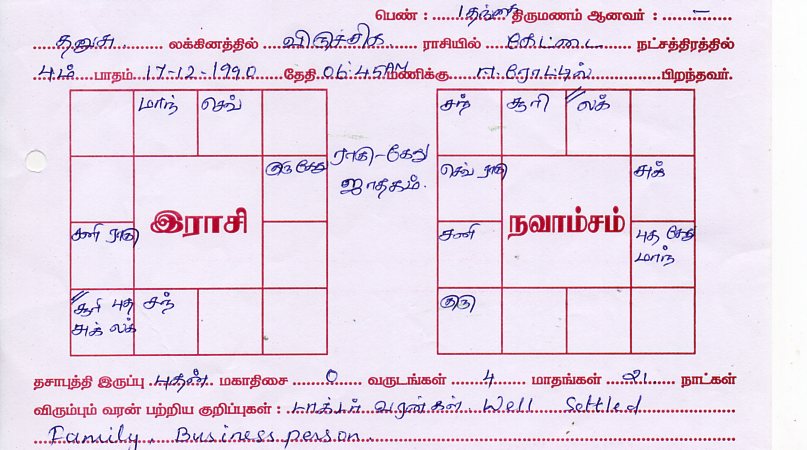 பெண் : 1 தங்கை திருமணம் ஆனவர் : –
தனுசு லக்கினத்தில் விருச்சிக ராசியில் கேட்டை நட்சத்திரத்தில்
4ம் பாதம் 17-12-1990 தேதி 06.45AM மணிக்கு ஈரோட்டில் பிறந்தவர்.
மாந் செவ் சந் சூரி லக்
குரு கேது ராகு-கேது செவ் ராகு சுக்
ஜாதகம்.
இராசி நவாம்சம்
சனி ராகு சனி புத கேது
மாந்
சூரி புத சந் குரு
சுக் லக்
தசாபுத்தி இருப்பு புதன் மகாதிசை 0 வருடங்கள் 4 மாதங்கள் 21 நாட்கள்
விரும்பும் வரன் பற்றிய குறிப்புகள் : டாக்டர் வரன்கள். Well Settled
Family, Business person.